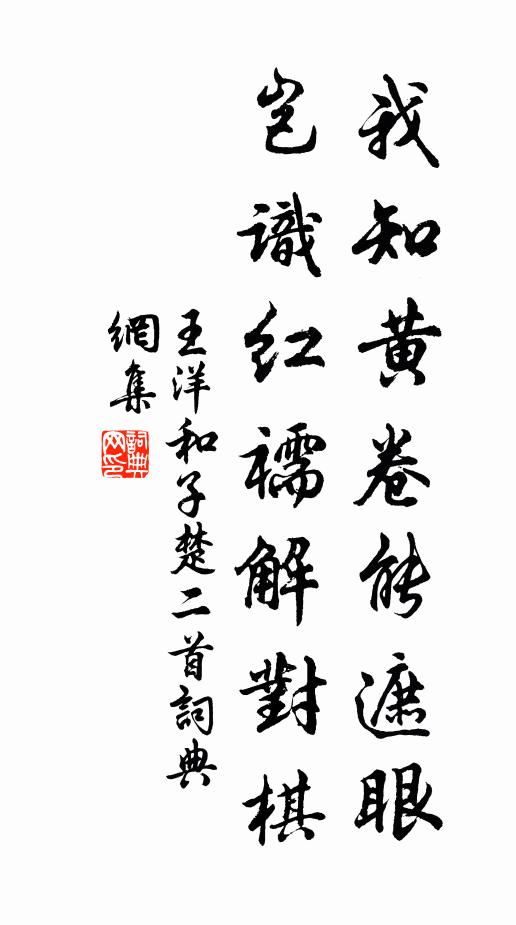 我知黄卷能遮眼
岂識红襦解對棋
王洋和子楚二首詞典
網集
詞典
网印